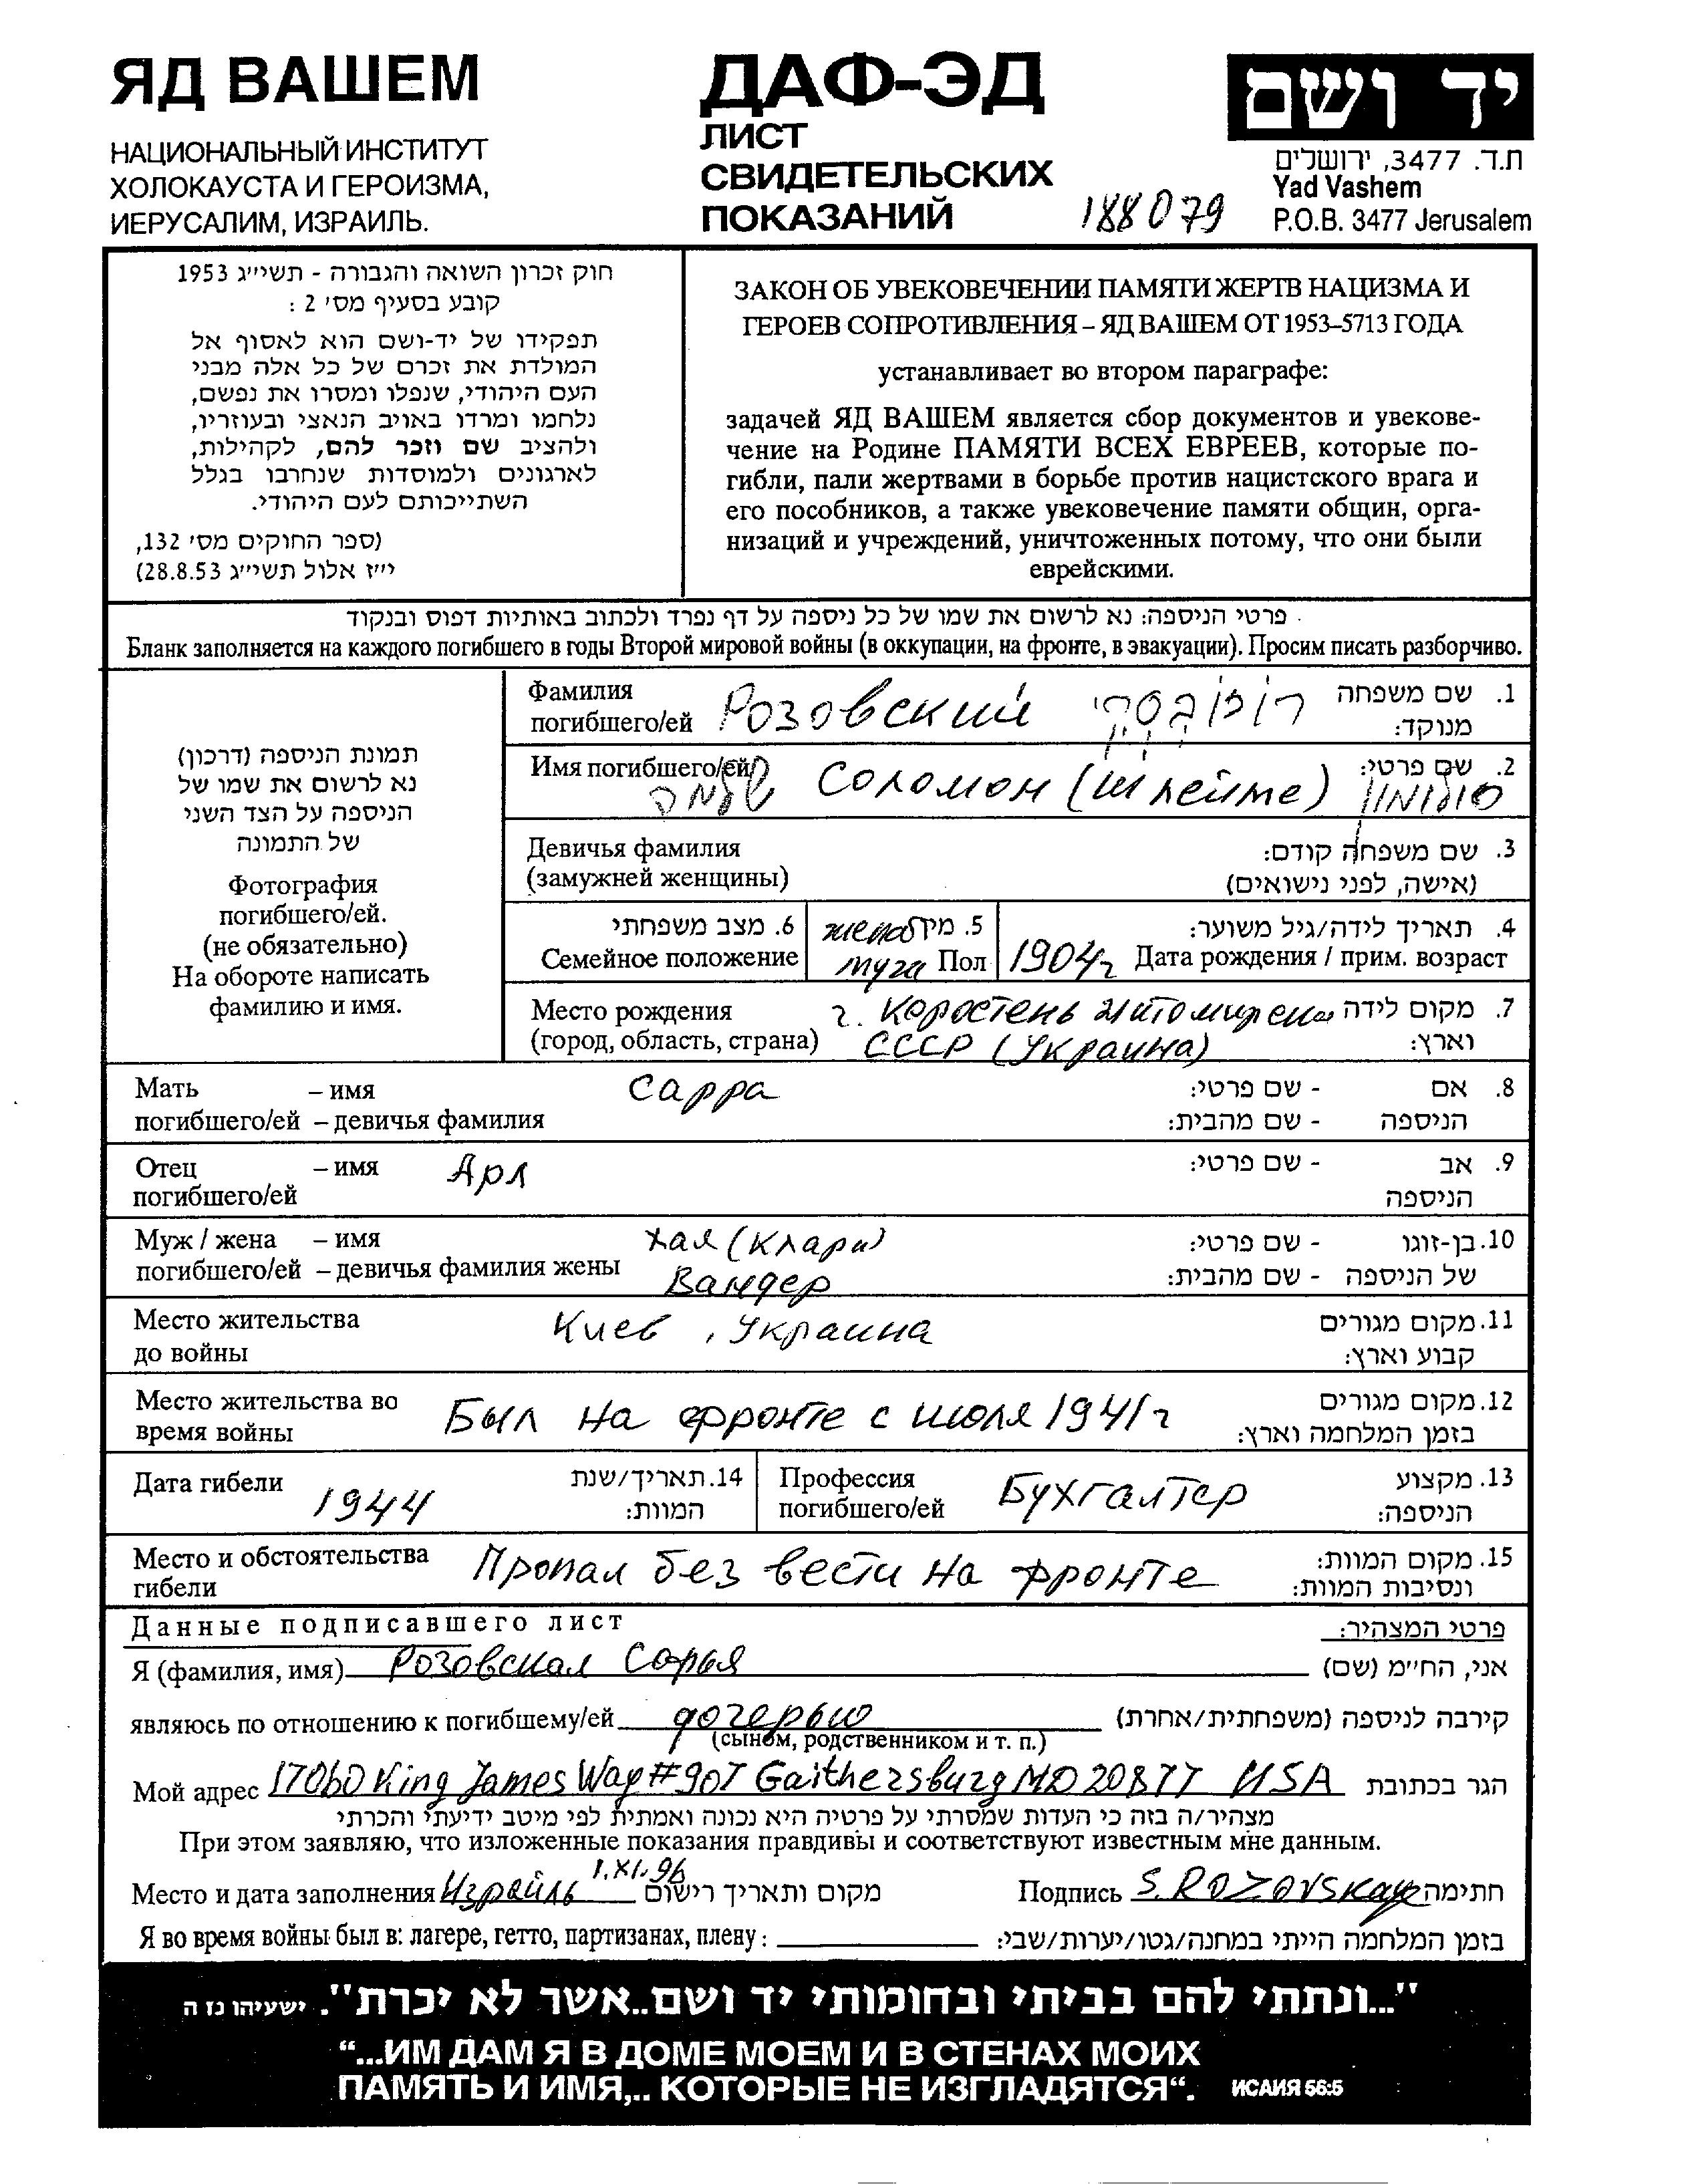 ЯД ВАШЕМ
НАЦИОНАЛЬНЫЙ ИНСТИТУТ
ХОЛОКАУСТА И ГЕРОИЗМА,
ИЕРУСАЛИМ, ИЗРАИЛЬ.
ДАФ-ЭД
ЛИСТ
СВИДЕТЕЛЬСКИХ
ПОКАЗАНИЙ
188079
יד ושם
ת.ד. 3477, ירושלים
Yad Vashem
P.O.B. 3477 Jerusalem
חוק זכרון השואה והגבורה - תשי״ג 1953
קובע בסעיף מס׳ 2 :
תפקידו של יד-ושם הוא לאסוף אל
המולדת את זכרם של כל אלה מבני
העם היהודי, שנפלו ומסרו את נפשם,
נלחמו ומרדו באויב הנאצי ובעוזריו,
ולהציב שם וזכר להם, לקהילות,
לארגונים ולמוסדות שנחרבו בגלל
השתייכותם לעם היהודי.
(ספר החוקים מס׳ 132,
י״ז אלול תשי״ג 28.8.53)
ЗАКОН ОБ УВЕКОВЕЧЕНИИ ПАМЯТИ ЖЕРТВ НАЦИЗМА И
ГЕРОЕВ СОПРОТИВЛЕНИЯ – ЯД ВАШЕМ ОТ 1953–5713 ГОДА
устанавливает во втором параграфе:
задачей ЯД ВАШЕМ является сбор документов и увекове-
чение на Родине ПАМЯТИ ВСЕХ ЕВРЕЕВ, которые по-
гибли, пали жертвами в борьбе против нацистского врага и
его пособников, а также увековечение памяти общин, орга-
низаций и учреждений, уничтоженных потому, что они были
еврейскими.
פרטי הניספה: נא לרשום את שמו של כל ניספה על דף נפרד ולכתוב באותיות דפוס ובנקוד
Бланк заполняется на каждого погибшего в годы Второй мировой войны (в оккупации, на фронте, в эвакуации). Просим писать разборчиво.
תמונת הניספה (דרכון)
נא לרשום את שמו של
הניספה על הצד השני
של התמונה
Фотография
погибшего/ей.
(не обязательно)
На обороте написать
фамилию и имя.
Фамилия
погибшего/ей Розовский רוזובסקי
1. שם משפחה
מנוקד:
Имя погибшего/ей Соломон (Шлейме) סולומון
שלמה
2. שם פרטי:
Девичья фамилия
(замужней женщины)
3. שם משפחה קודם:
(אישה, לפני נישואים)
6. מצב משפחתי
Семейное положение
5. מין
Пол
4. תאריך לידה/גיל משוער:
1904г Дата рождения / прим. возраст
Место рождения
(город, область, страна)
г. Коростень Житомирской
СССР (Украина)
7. מקום לידה
וארץ:
Мать – имя Сарра
погибшего/ей – девичья фамилия
8. אם - שם פרטי:
הניספה - שם מהבית:
Отец – имя Арл
погибшего/ей
9. אב - שם פרטי:
הניספה
Муж / жена – имя Хая (Клара)
погибшего/ей – девичья фамилия жены Вандер
10. בן-זוגו - שם פרטי:
של הניספה - שם מהבית:
Место жительства
до войны
Киев, Украина
11. מקום מגורים
קבוע וארץ:
Место жительства во
время войны
Был на фронте с июля 1941г
12. מקום מגורים
בזמן המלחמה וארץ:
Дата гибели 1944
14. תאריך/שנת
המוות:
Профессия
погибшего/ей Бухгалтер
13. מקצוע
הניספה:
Место и обстоятельства
гибели
Пропал без вести на фронте
15. מקום המוות:
ונסיבות המוות:
Данные подписавшего лист
פרטי המצהיר:
Я (фамилия, имя) Розовская Софья אני, הח״מ (שם)
являюсь по отношению к погибшему/ей дочерью קירבה לניספה (משפחתית/אחרת)
(сыном, родственником и т. п.)
Мой адрес 17060 King James Way #907 Gaithersburg MD 20877 USA הגר בכתובת
מצהיר/ה בזה כי העדות שמסרתי על פרטיה היא נכונה ואמתית לפי מיטב ידיעתי והכרתי
При этом заявляю, что изложенные показания правдивы и соответствуют известным мне данным.
Место и дата заполнения Израиль 1.XI.96 מקום ותאריך רישום
Подпись S. ROZOVSKAYA חתימה
Я во время войны был в: лагере, гетто, партизанах, плену: בזמן המלחמה הייתי במחנה/גטו/יערות/שבי:
"...ונתתי להם בביתי ובחומותי יד ושם..אשר לא יכרת". ישעיהו נז ה
“...ИМ ДАМ Я В ДОМЕ МОЕМ И В СТЕНАХ МОИХ
ПАМЯТЬ И ИМЯ,.. КОТОРЫЕ НЕ ИЗГЛАДЯТСЯ“. ИСАИЯ 56:5